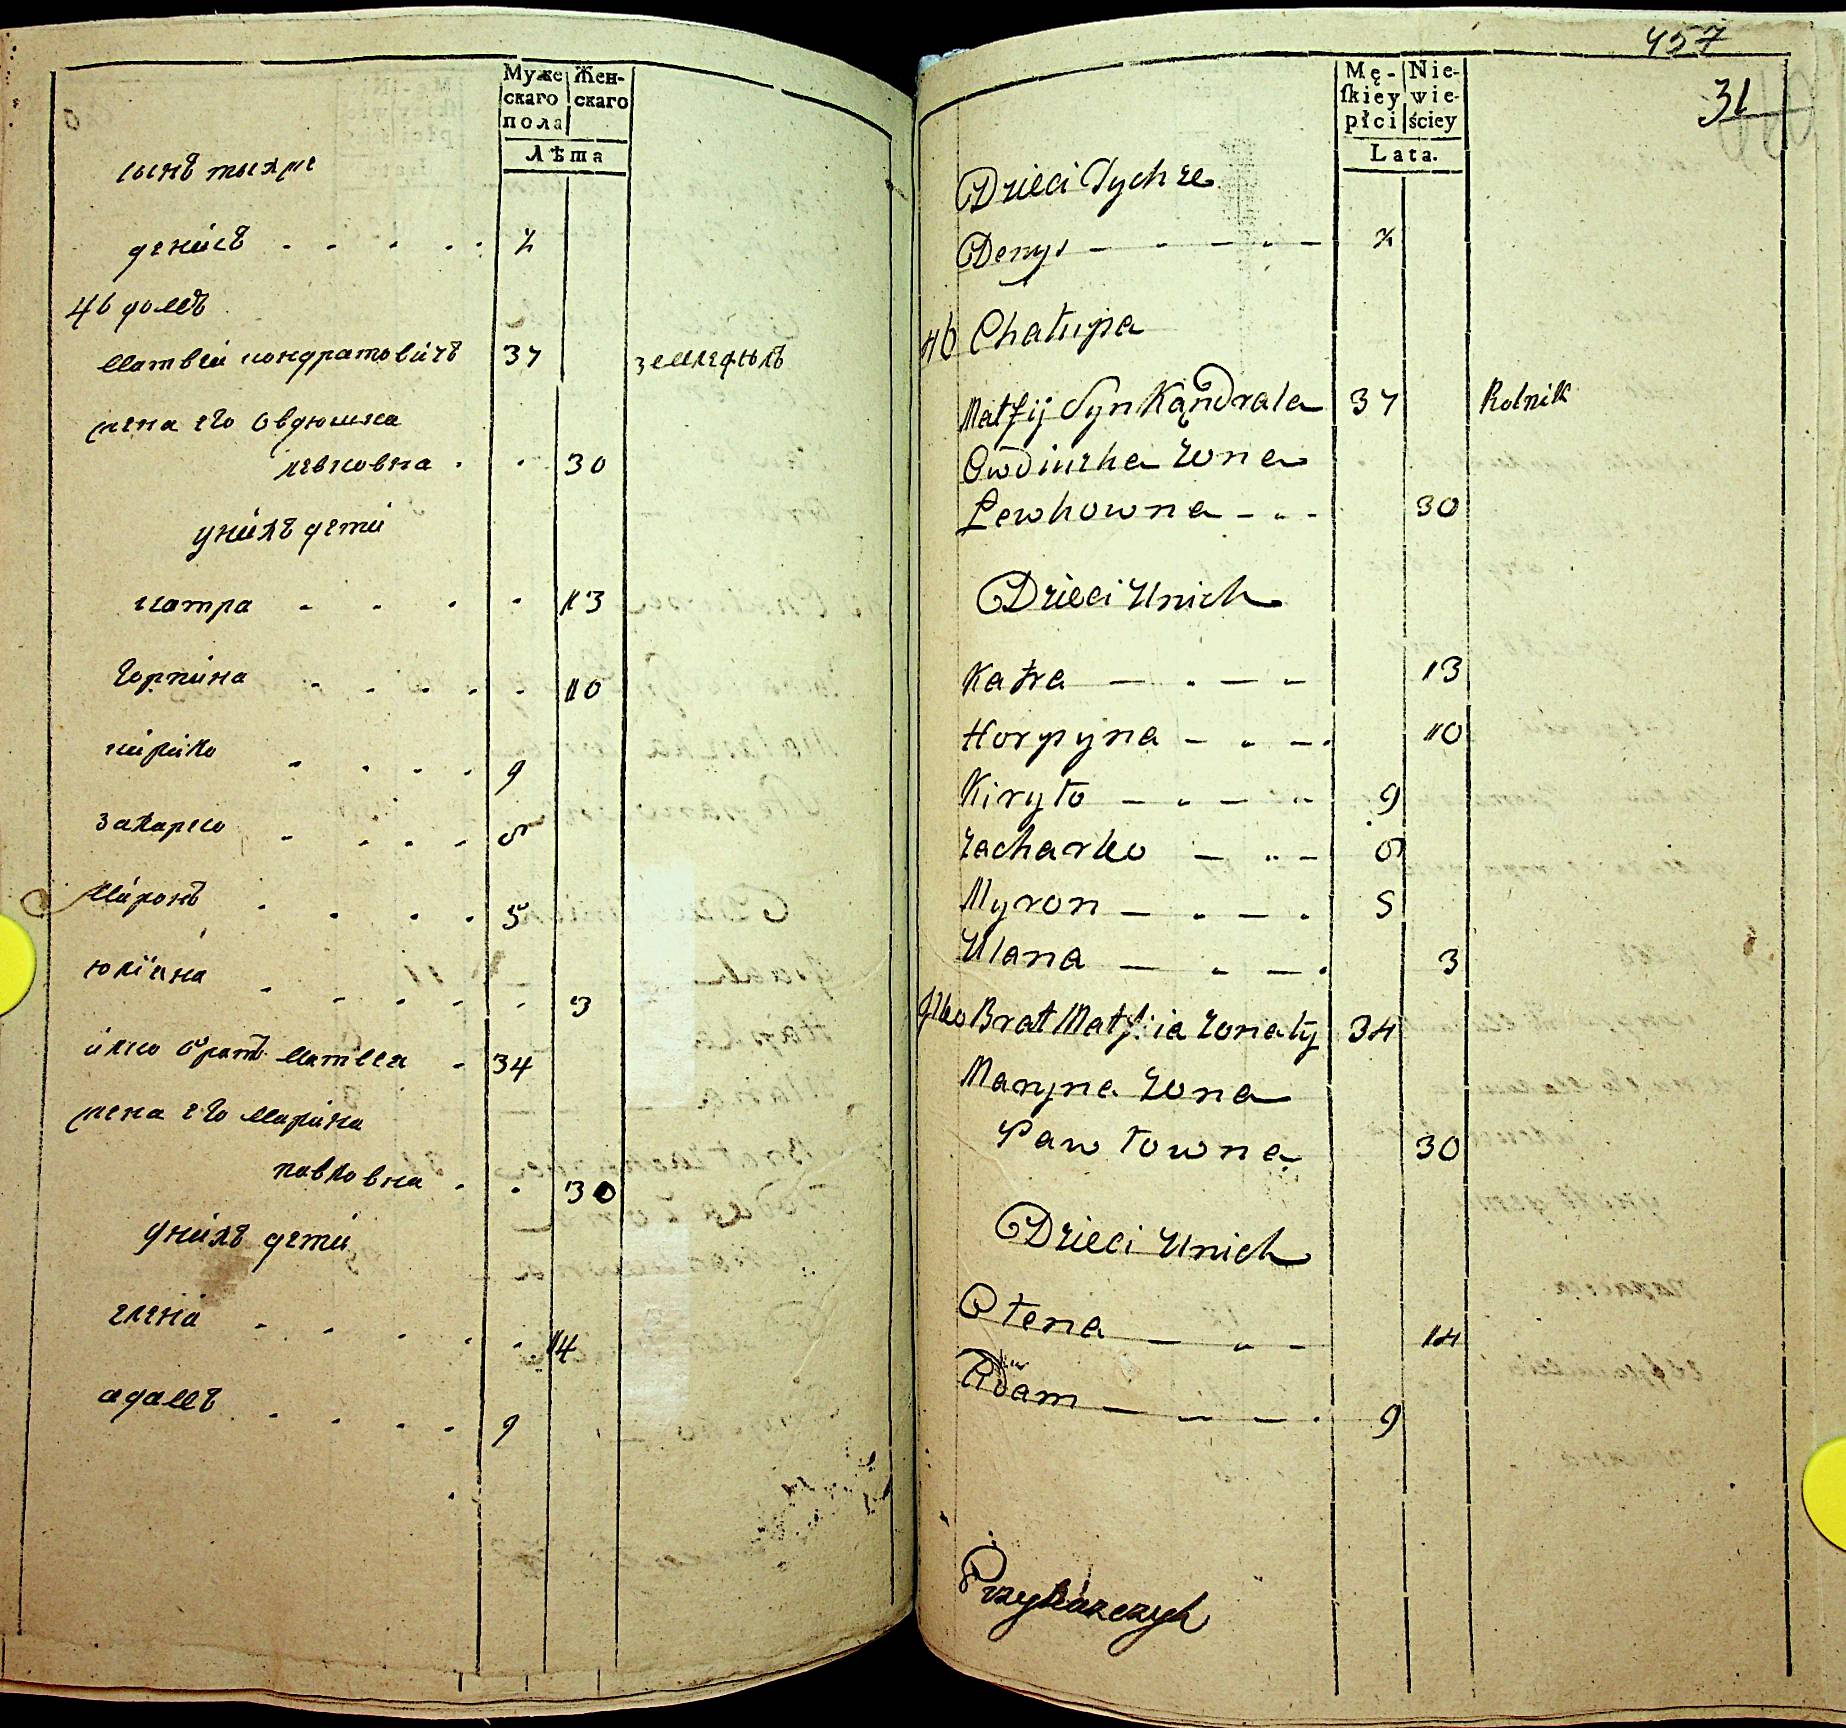 Муже Жен-
скаго скаго
пола
Лѣта
сынъ тыхже
денисъ - - - - - ½
46 домъ
Матвѣй кондратовичъ 37 земледѣлъ
жена его Овдюшка
левковна - - 30
унихъ дети
катра - - - - 13
Горпина - - - - 10
кирило - - - - 9
захарко - - - - 6
Миронъ - - - - 5
юлiана - - - - - 3
илко братъ Матвея - 34
жена его Марина
павловна - - 30
унихъ дети
елена - - - - - 14
адамъ - - - - 9
457
31
Mę- Nie-
ſkiey wie-
płci ściey
Lata.
Dzieci Tychże
Denys - - - - - ½
46 Chałupa
Matfij Syn Kąndrata 37 Rolnik
Owdiuszka Zona
Lewkowna - - - 30
Dzieci Unich
Katra - - - - 13
Horpyna - - - 10
Kiryło - - - - 9
Zacharko - - - 6
Myron - - - - 5
Ulana - - - - 3
Ilko Brat Matfiia Zonaty 34
Maryna Zona
Pawłowna 30
Dzieci Unich
Ołena - - - 14
Adam - - - - 9